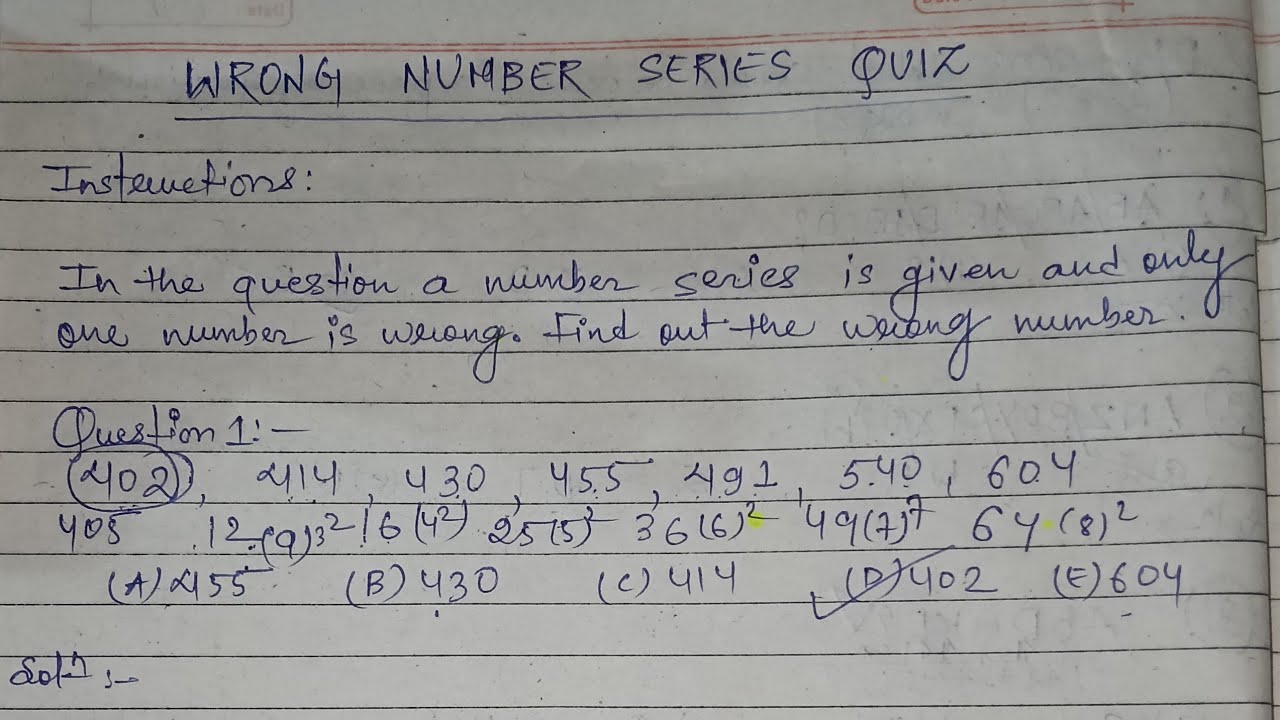 WRONG NUMBER SERIES QUIZ
Instructions:
In the question a number series is given and only
one number is wrong. Find out the wrong number.
Question 1:-
402, 414, 430, 455, 491, 540, 604
405 12-(9)3² 16(4²) 25(5)² 36(6)² 49(7)⁷ 64(8)²
(A) 455 (B) 430 (C) 414 (D) 402 (E) 604
Solⁿ :-